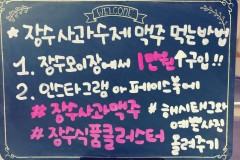 WELCOME
* 장수사과수제 맥주 먹는방법
1. 장수요리장에서 1만원↑구입!!
2. 인스타그램 아 페이스북에
#장수사과맥주 #해시태그와
#장수식품클러스터 예쁜사진
올려주기